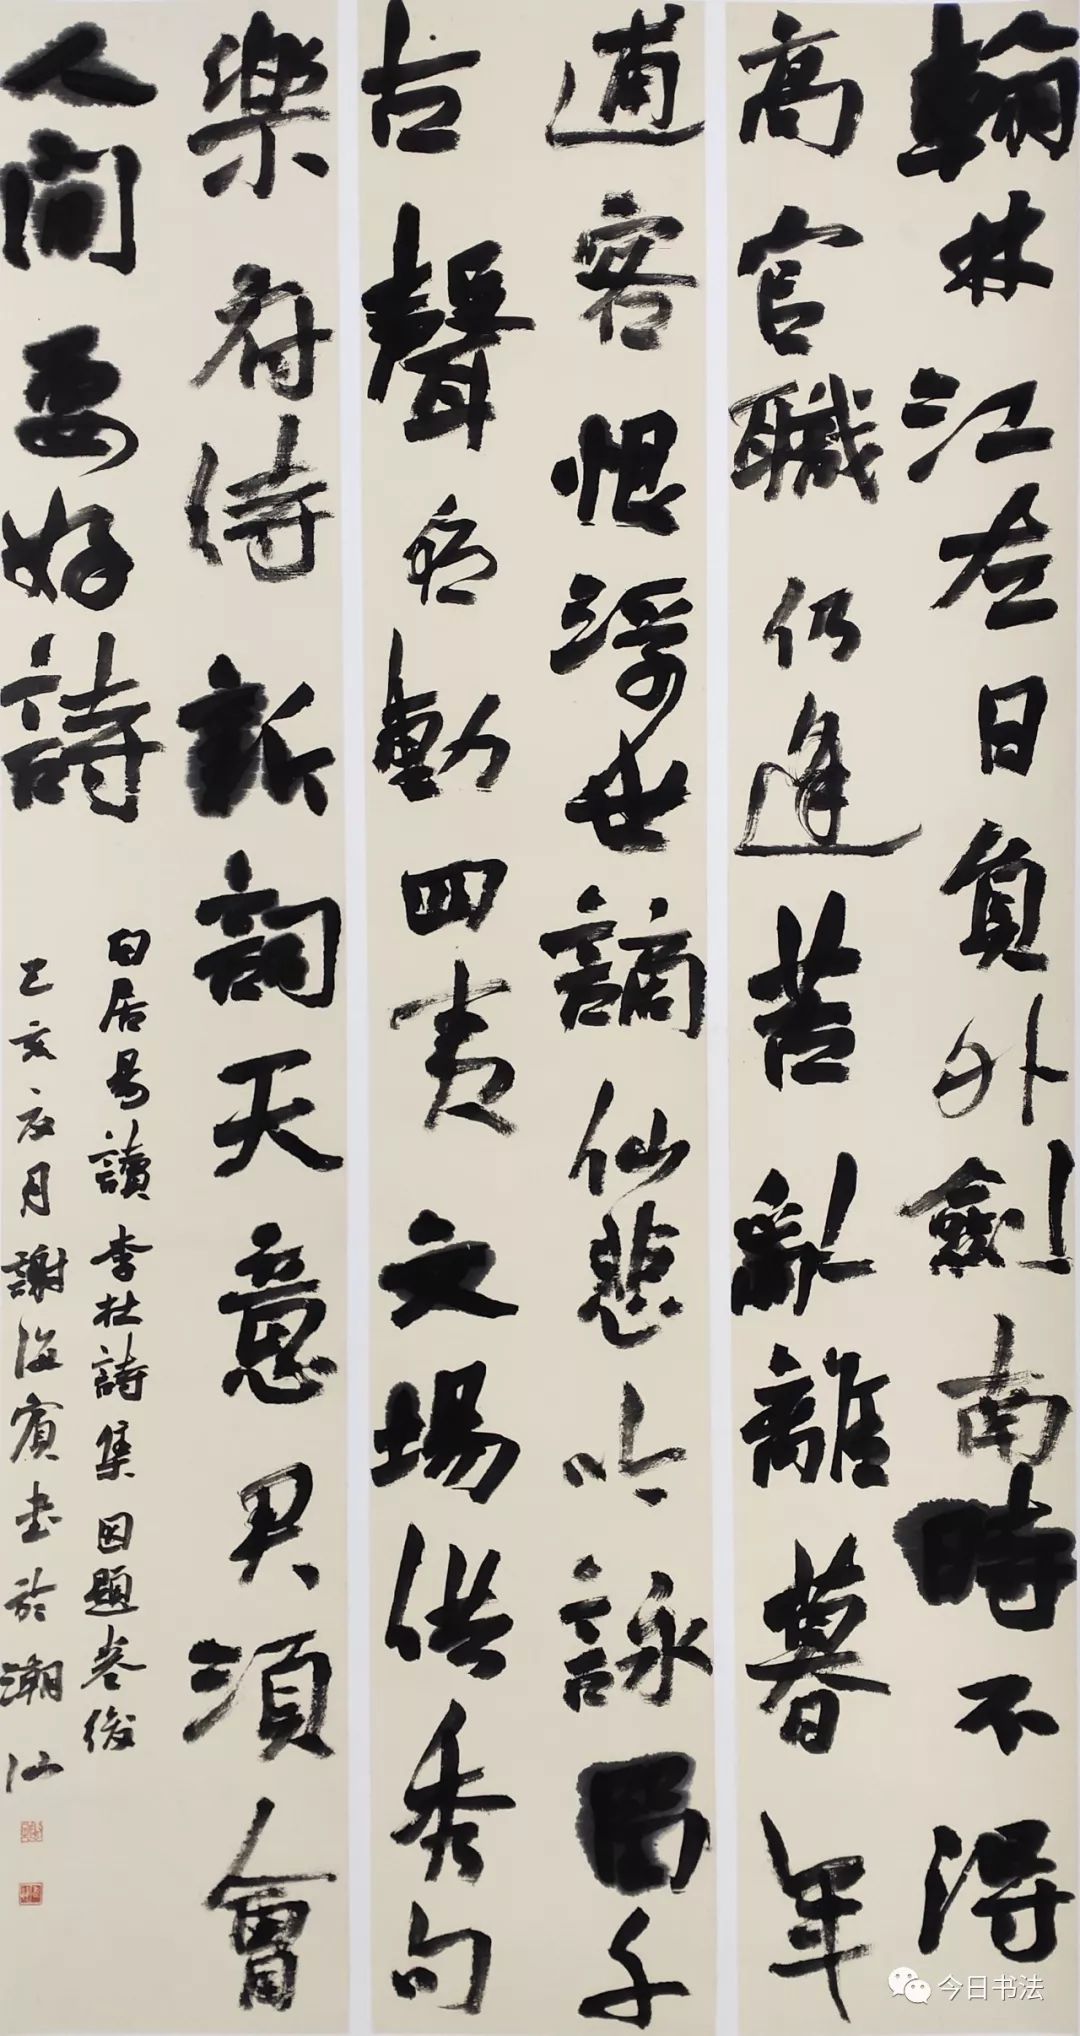 翰林江左日員外劍南時不得
高官職仍逢苦亂離暮年
逋客恨浮世謫仙悲吟詠留千
古聲名動四夷文場供秀句
樂府待新詞天意君須會
人間要好詩
白居易讀李杜詩集因題卷後
己亥夏月謝海賓書於潮汕
今日书法